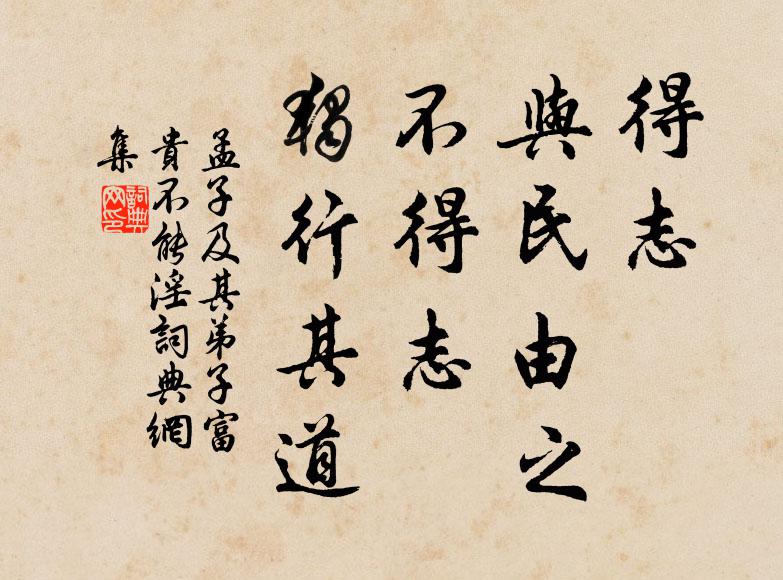 得志
與民由之
不得志
獨行其道
孟子及其弟子富
貴不能淫詞典網
集
詞典
网印